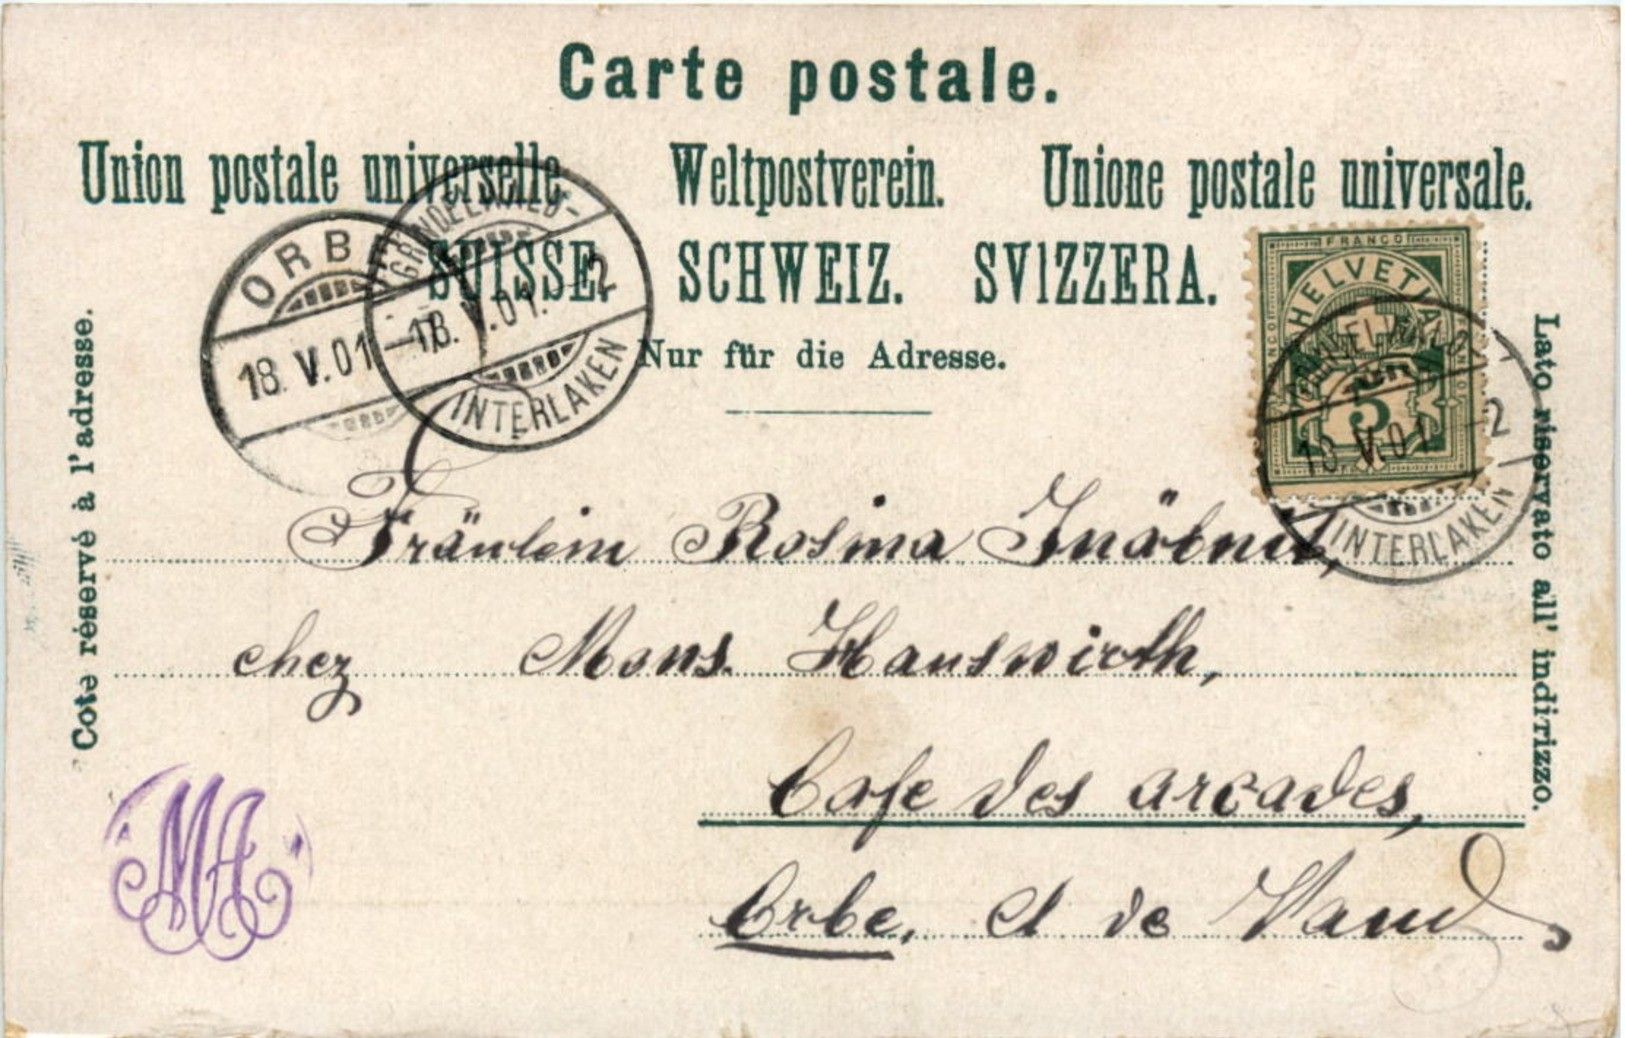 Carte postale.
Union postale universelle Weltpostverein. Unione postale universale.
SUISSE. SCHWEIZ. SVIZZERA.
Nur für die Adresse.
Coté réservé à l'adresse.
Lato riservato all' indirizzo.
ORBE
18. V. 01
GRINDELWALD-
18. V. 01. -2
INTERLAKEN
FRANCO
HELVETIA
5
GRINDELWALD-
18. V. 01. -2
INTERLAKEN
Fräulein Rosina Inäbnit,
chez Mons. Hauswirth,
Cafe des arcades,
Orbe, Ct de Vaud
"MA"